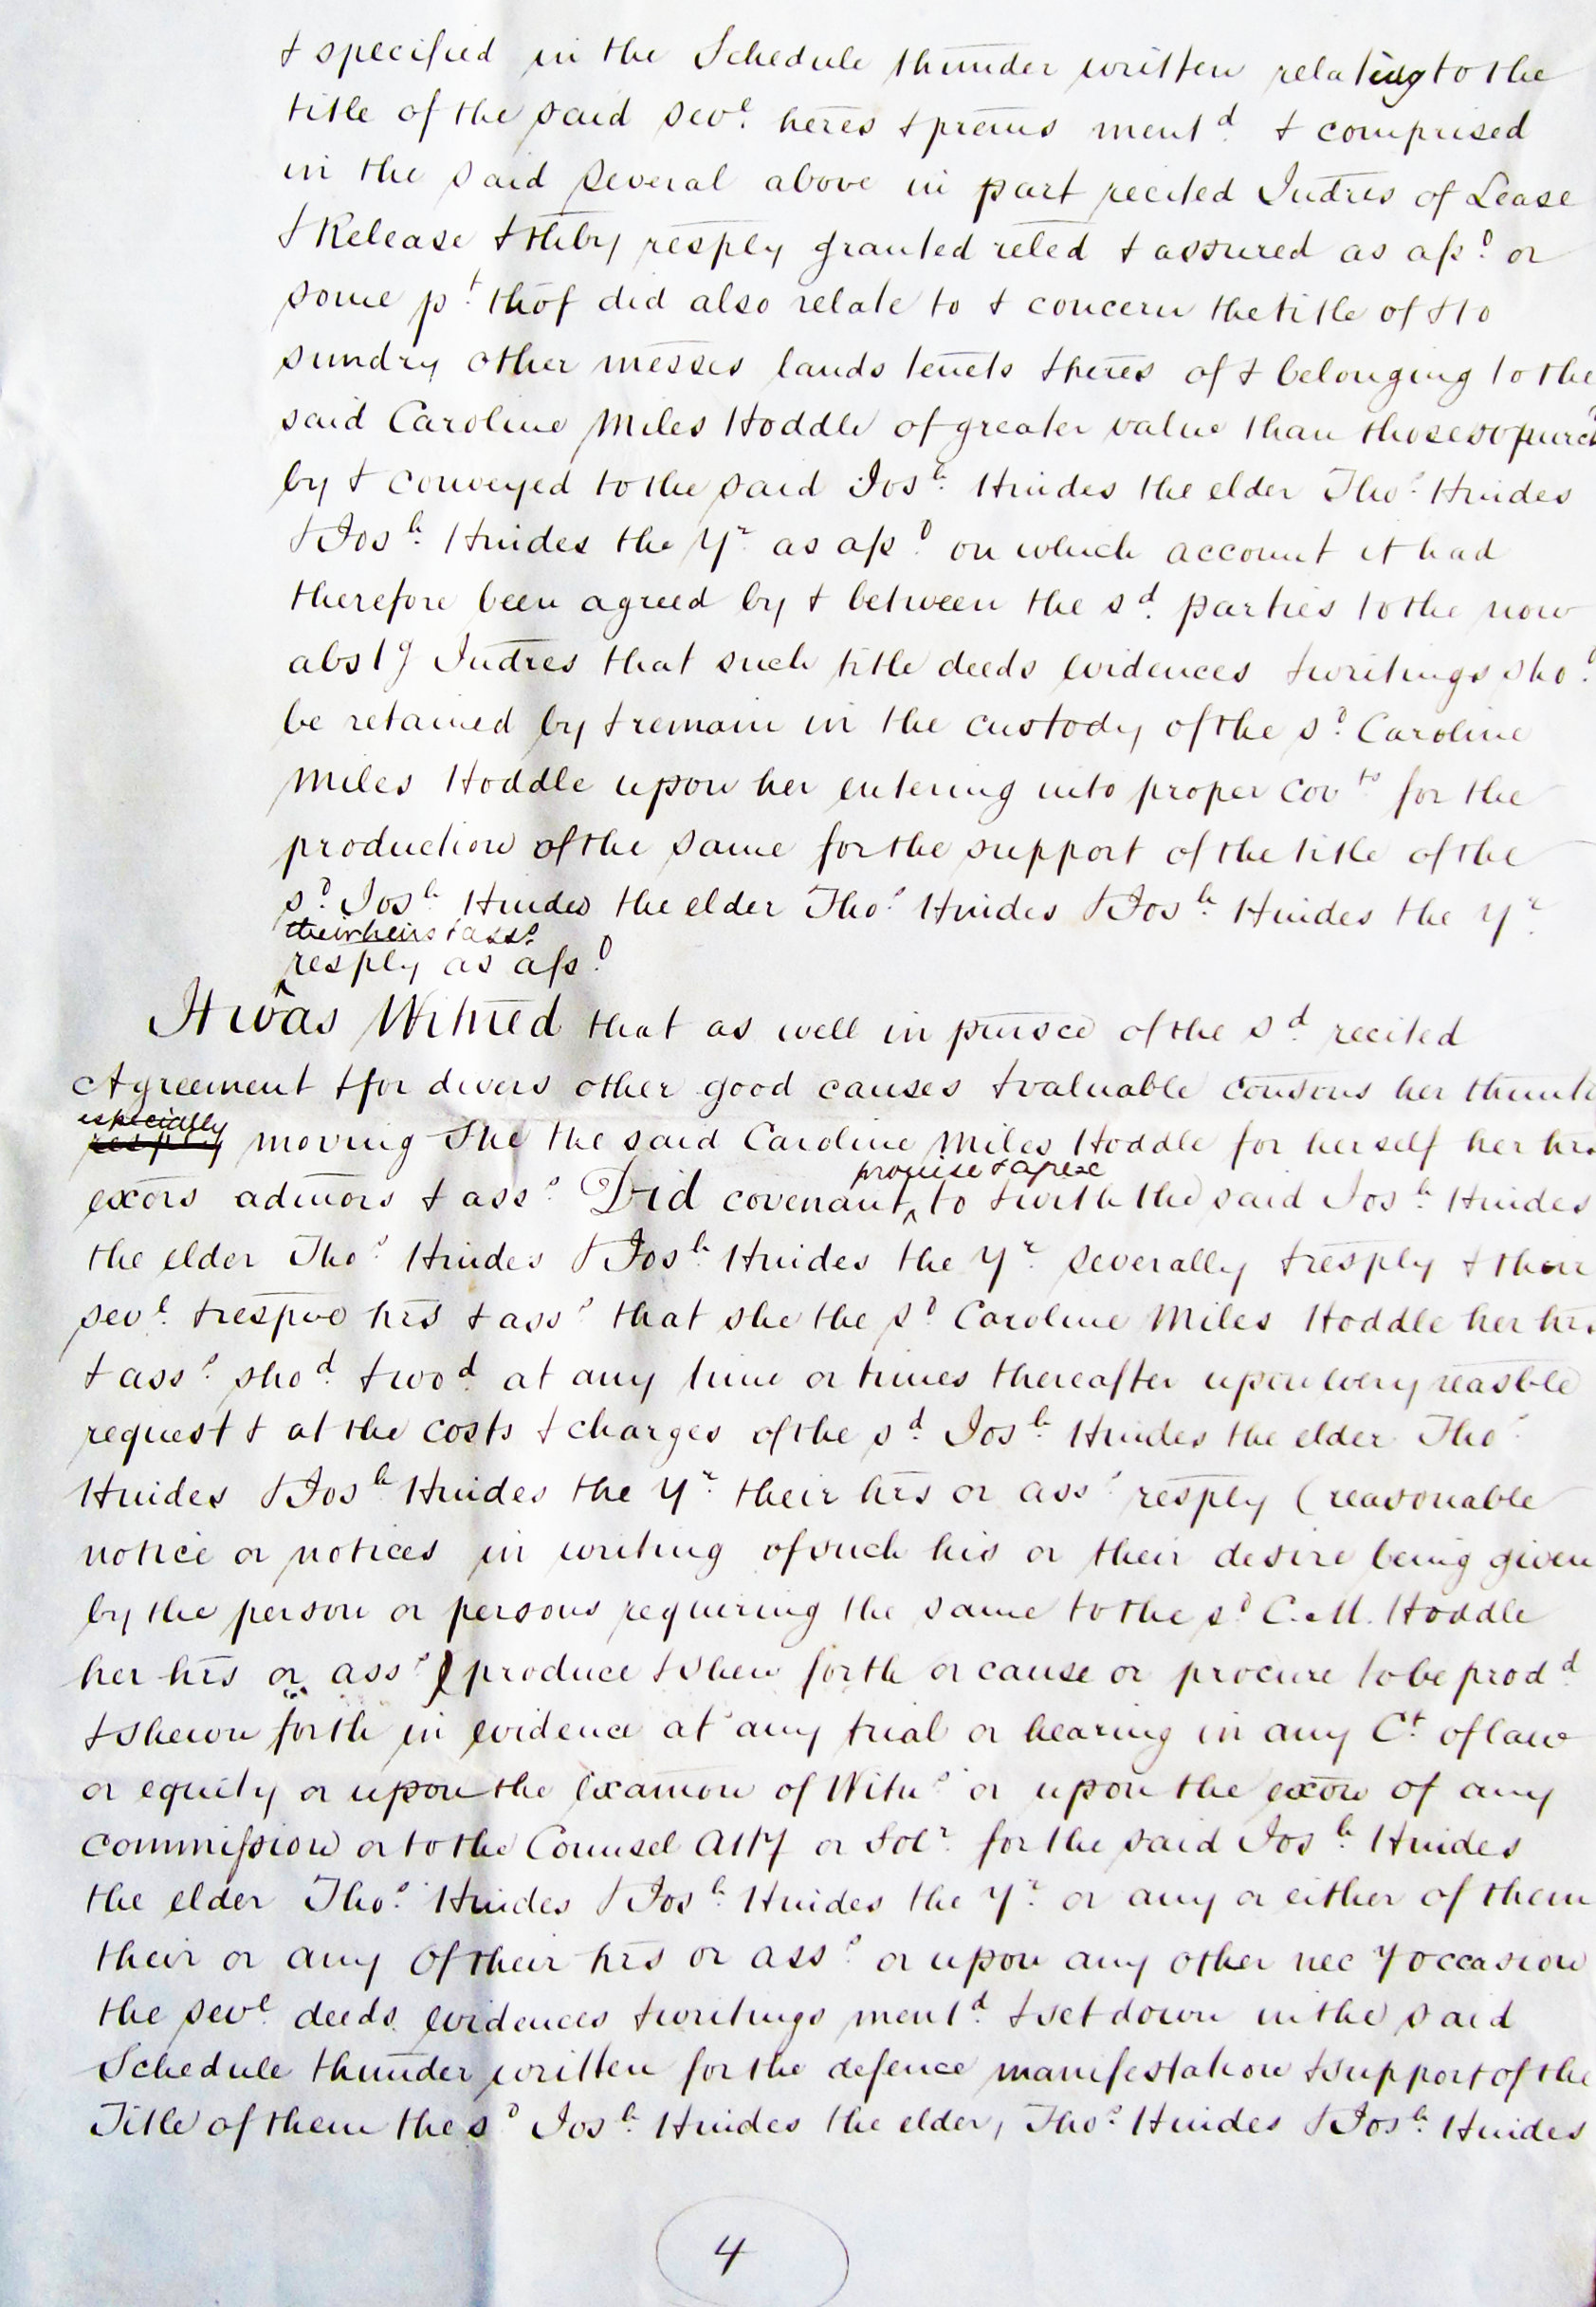 & specified in the Schedule thunder written relating to the
title of the said sevl. heres & prems mentd. & comprised
in the said several above in part recited Indres of Lease
& Release & thby resply granted reled & assured as afsd. or
some pt. thof did also relate to & concern the title of & to
sundry other messes lands tenets & heres of & belonging to the
said Caroline Miles Hoddle of greater value than those so purchd
by & conveyed to the said Josh. Hindes the elder Thos. Hindes
& Josh. Hindes the Yr. as afsd. on which account it had
therefore been agreed by & between the sd. parties to the now
abstg Indres that such title deeds evidences & writings shod.
be retained by & remain in the custody of the sd. Caroline
Miles Hoddle upon her entering into proper Covts for the
production of the same for the support of the title of the
sd. Josh. Hindes the elder Thos. Hindes & Josh. Hindes the Yr.
their heirs & asss.
resply as afsd.
It was Witned that as well in pursce of the sd. recited
Agreement & for divers other good causes & valuable consons her thunto
especially
resply moving She the said Caroline Miles Hoddle for herself her hrs
promise & agree
exors admors & asss. Did covenant to & with the said Josh. Hindes
the elder Thos. Hindes & Josh. Hindes the Yr. severally & resply & their
sevl. & respve hrs & asss. that she the sd. Caroline Miles Hoddle her hrs
& asss. shod. & wod. at any time or times thereafter upon every reasble
request & at the costs & charges of the sd. Josh. Hindes the elder Thos.
Hindes & Josh. Hindes the Yr. their hrs or asss. resply (reasonable
notice or notices in writing of such his or their desire being given
by the person or persons requiring the same to the sd. C. M. Hoddle
her hrs or asss.) produce & shew forth or cause or procure to be prodd.
& shewn forth in evidence at any trial or hearing in any Ct. of law
or equity or upon the examon of Wits. or upon the exon of any
commission or to the Counsel Atty or Solr. for the said Josh. Hindes
the elder Thos. Hindes & Josh. Hindes the Yr. or any or either of them
their or any of their hrs or asss. or upon any other necy occasion
the sevl. deeds evidences & writings mentd. & set down in the said
Schedule thunder written for the defence manifestation & support of the
Title of them the sd. Josh. Hindes the elder, Thos. Hindes & Josh. Hindes
4